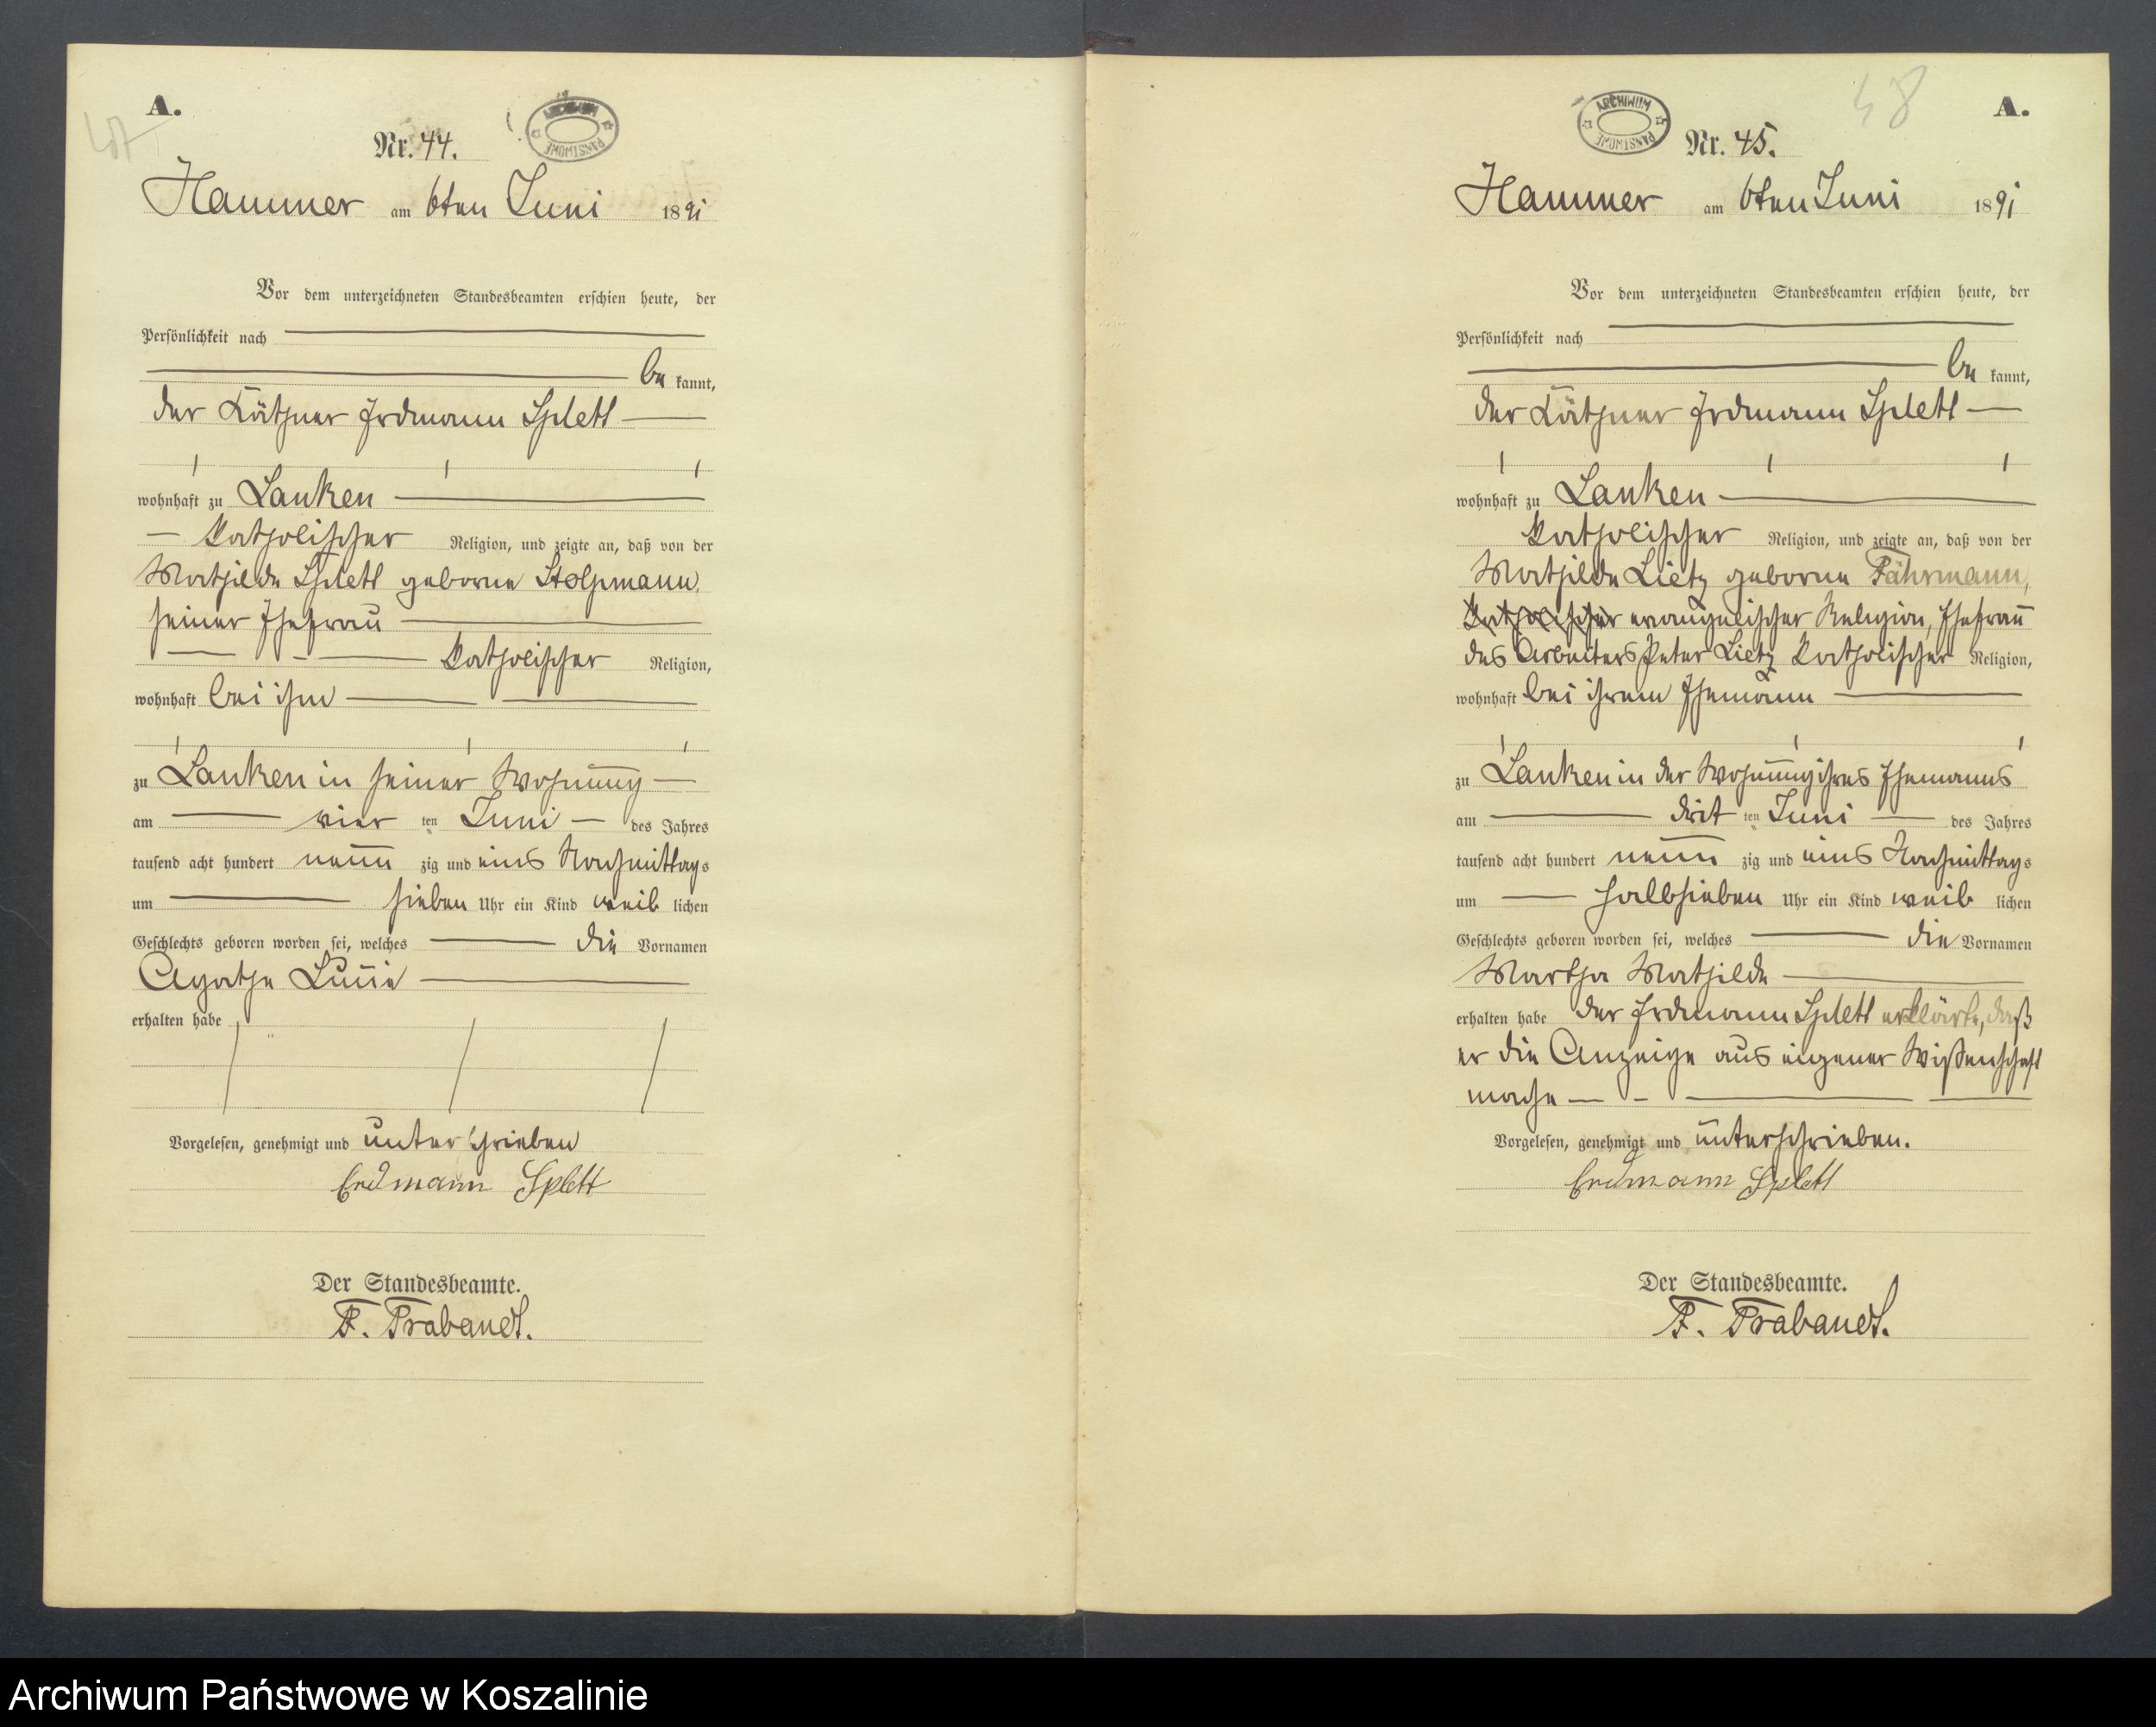 A.
47
ARCHIWUM PAŃSTWOWE
Nr. 44.
Hammer am 6ten Juni 1891
Vor dem unterzeichneten Standesbeamten erschien heute, der
Persönlichkeit nach
be kannt,
der Käthner Erdmann Splett
wohnhaft zu Lanken
katholischer Religion, und zeigte an, daß von der
Mathilde Splett geborne Stolpmann,
seiner Ehefrau
katholischer Religion,
wohnhaft bei ihm
zu Lanken in seiner Wohnung
am vier ten Juni des Jahres
tausend acht hundert neun zig und eins Nachmittags
um sieben Uhr ein Kind weib lichen
Geschlechts geboren worden sei, welches die Vornamen
Agathe
erhalten habe
Vorgelesen, genehmigt und unterschrieben
Erdmann Splett
Der Standesbeamte.
F. Trabandt.
48
A.
ARCHIWUM PAŃSTWOWE
Nr. 45.
Hammer am 6ten Juni 1891
Vor dem unterzeichneten Standesbeamten erschien heute, der
Persönlichkeit nach
be kannt,
der Käthner Erdmann Splett
wohnhaft zu Lanken
katholischer Religion, und zeigte an, daß von der
Mathilde Lietz geborne Fährmann,
katholischer evangelischer Religion, Ehefrau
des Arbeiters Peter Lietz katholischer Religion,
wohnhaft bei ihrem Ehemann
zu Lanken in der Wohnung ihres Ehemanns
am drit ten Juni des Jahres
tausend acht hundert neun zig und eins Nachmittags
um halbsieben Uhr ein Kind weib lichen
Geschlechts geboren worden sei, welches die Vornamen
Martha Mathilde
erhalten habe der Erdmann Splett erklärte, daß
er die Anzeige aus eigener Wißenschaft
mache
Vorgelesen, genehmigt und unterschrieben.
Erdmann Splett
Der Standesbeamte.
F. Trabandt.
Archiwum Państwowe w Koszalinie